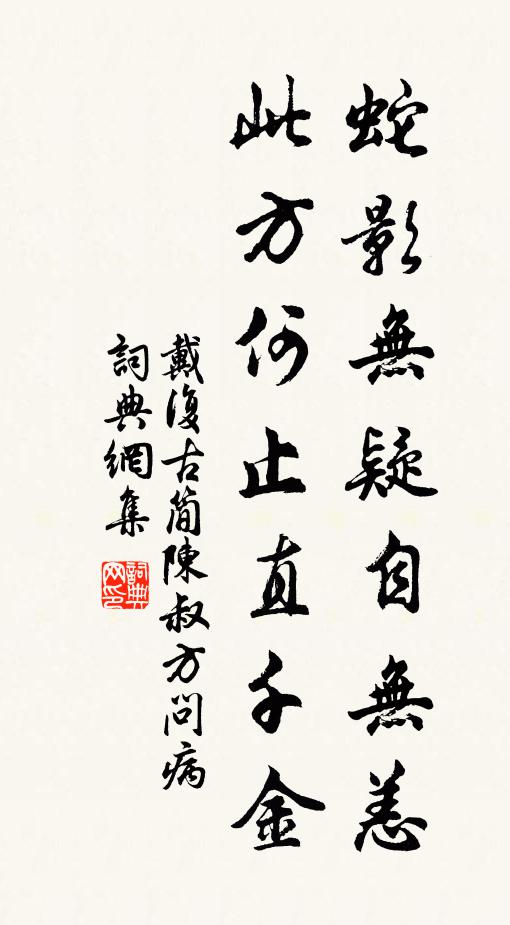 蛇影無疑自無恙
此方何止直千金
戴復古簡陳叔方問病
詞典網集
詞典网印